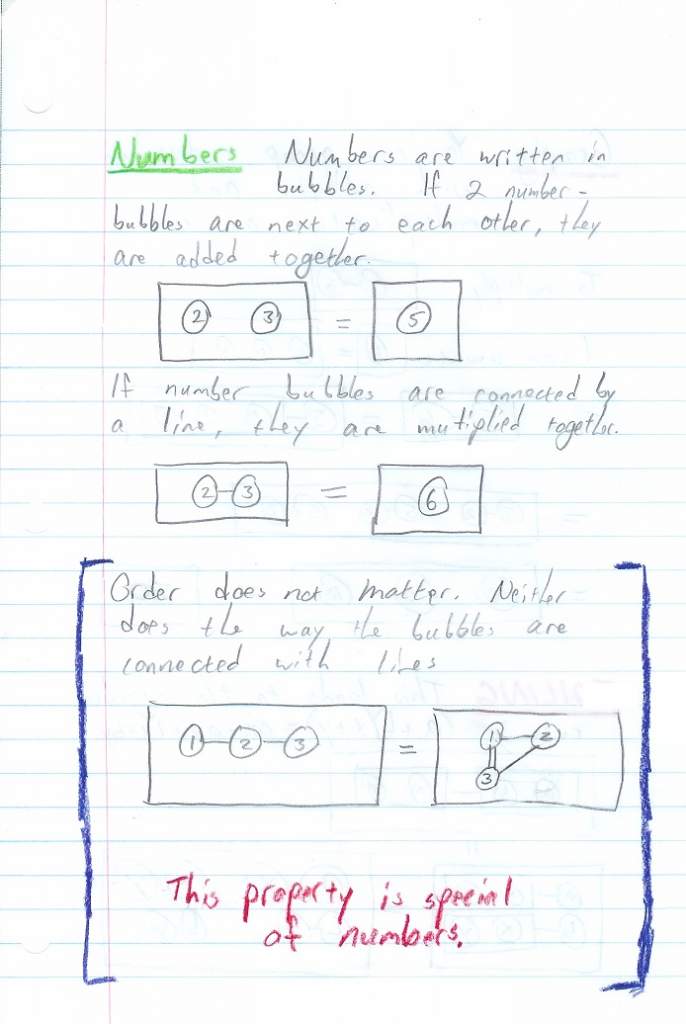 Numbers Numbers are written in
bubbles. If 2 number-
bubbles are next to each other, they
are added together.
2 3 = 5
If number bubbles are connected by
a line, they are mutiplied together.
2 3 = 6
Order does not matter. Neither
does the way the bubbles are
connected with lines
1 2 3 = 1 2
3
This property is special
of numbers.